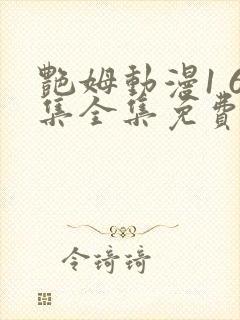 艷姆動漫1 6
集全集免費
令琦琦